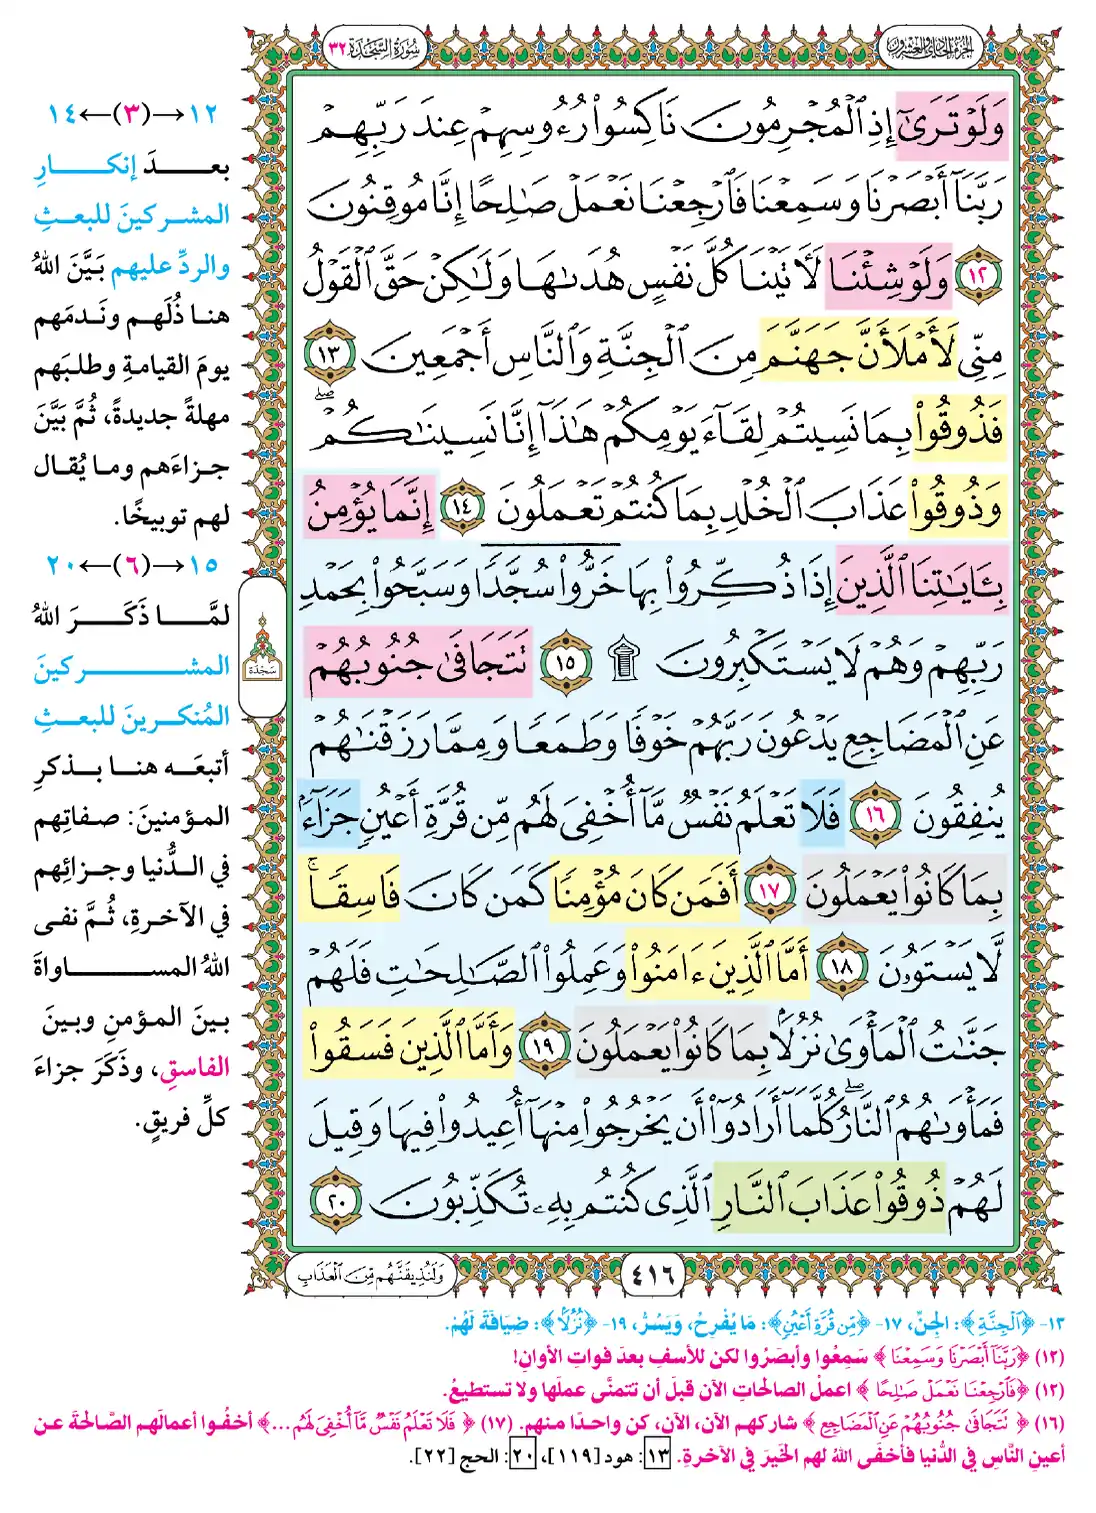 الجزء الحادي والعشرون
سورة السجدة ٣٢
وَلَوْ تَرَىٰٓ إِذِ ٱلْمُجْرِمُونَ نَاكِسُوا۟ رُءُوسِهِمْ عِندَ رَبِّهِمْ
رَبَّنَآ أَبْصَرْنَا وَسَمِعْنَا فَٱرْجِعْنَا نَعْمَلْ صَٰلِحًا إِنَّا مُوقِنُونَ
١٢ وَلَوْ شِئْنَا لَءَاتَيْنَا كُلَّ نَفْسٍ هُدَىٰهَا وَلَٰكِنْ حَقَّ ٱلْقَوْلُ
مِنِّى لَأَمْلَأَنَّ جَهَنَّمَ مِنَ ٱلْجِنَّةِ وَٱلنَّاسِ أَجْمَعِينَ ١٣
فَذُوقُوا۟ بِمَا نَسِيتُمْ لِقَآءَ يَوْمِكُمْ هَٰذَآ إِنَّا نَسِينَٰكُمْ ۖ
وَذُوقُوا۟ عَذَابَ ٱلْخُلْدِ بِمَا كُنتُمْ تَعْمَلُونَ ١٤ إِنَّمَا يُؤْمِنُ
بِـَٔايَٰتِنَا ٱلَّذِينَ إِذَا ذُكِّرُوا۟ بِهَا خَرُّوا۟ سُجَّدًا وَسَبَّحُوا۟ بِحَمْدِ
رَبِّهِمْ وَهُمْ لَا يَسْتَكْبِرُونَ ۩ ١٥ تَتَجَافَىٰ جُنُوبُهُمْ
عَنِ ٱلْمَضَاجِعِ يَدْعُونَ رَبَّهُمْ خَوْفًا وَطَمَعًا وَمِمَّا رَزَقْنَٰهُمْ
يُنفِقُونَ ١٦ فَلَا تَعْلَمُ نَفْسٌ مَّآ أُخْفِىَ لَهُم مِّن قُرَّةِ أَعْيُنٍ جَزَآءًۢ
بِمَا كَانُوا۟ يَعْمَلُونَ ١٧ أَفَمَن كَانَ مُؤْمِنًا كَمَن كَانَ فَاسِقًا ۚ
لَّا يَسْتَوُۥنَ ١٨ أَمَّا ٱلَّذِينَ ءَامَنُوا۟ وَعَمِلُوا۟ ٱلصَّٰلِحَٰتِ فَلَهُمْ
جَنَّٰتُ ٱلْمَأْوَىٰ نُزُلًۢا بِمَا كَانُوا۟ يَعْمَلُونَ ١٩ وَأَمَّا ٱلَّذِينَ فَسَقُوا۟
فَمَأْوَىٰهُمُ ٱلنَّارُ ۖ كُلَّمَآ أَرَادُوٓا۟ أَن يَخْرُجُوا۟ مِنْهَآ أُعِيدُوا۟ فِيهَا وَقِيلَ
لَهُمْ ذُوقُوا۟ عَذَابَ ٱلنَّارِ ٱلَّذِى كُنتُم بِهِۦ تُكَذِّبُونَ ٢٠
٤١٦
وَلَنُذِيقَنَّهُم مِّنَ ٱلْعَذَابِ
سجدة
١٢→(٣)←١٤
بعدَ إنكارِ
المشركينَ للبعثِ
والردِّ عليهم بَيَّنَ اللهُ
هنا ذُلَهم وندمَهم
يومَ القيامةِ وطلبَهم
مهلةً جديدةً، ثُمَّ بَيَّنَ
جزاءَهم وما يُقال
لهم توبيخًا.
١٥→(٦)←٢٠
لمَّا ذَكَرَ اللهُ
المشركينَ
المُنكرينَ للبعثِ
أتبعَه هنا بذكرِ
المؤمنينَ: صفاتِهم
في الدُّنيا وجزائِهم
في الآخرةِ، ثُمَّ نفى
اللهُ المساواةَ
بينَ المؤمنِ وبينَ
الفاسقِ، وذَكَرَ جزاءَ
كلِّ فريقٍ.
١٣- ﴿ٱلْجِنَّةِ﴾: الجِنِّ، ١٧- ﴿مِّن قُرَّةِ أَعْيُنٍ﴾: مَا يُفْرِحُ، وَيَسُرُّ، ١٩- ﴿نُزُلًۢا﴾: ضِيَافَةً لَهُمْ.
(١٢) ﴿رَبَّنَآ أَبْصَرْنَا وَسَمِعْنَا﴾ سَمِعُوا وأبصَرُوا لكن للأسفِ بعدَ فواتِ الأوانِ!
(١٢) ﴿فَٱرْجِعْنَا نَعْمَلْ صَٰلِحًا﴾ اعملْ الصالحاتِ الآن قبلَ أن تتمنَّى عملَها ولا تستطيعُ.
(١٦) ﴿تَتَجَافَىٰ جُنُوبُهُمْ عَنِ ٱلْمَضَاجِعِ﴾ شاركهم الآن، الآن، كن واحدًا منهم. (١٧) ﴿فَلَا تَعْلَمُ نَفْسٌ مَّآ أُخْفِىَ لَهُم...﴾ أخفُوا أعمالَهم الصَّالحةَ عن
أعينِ النَّاسِ في الدُّنيا فأخفَى اللهُ لهم الخَيرَ في الآخرةِ. ١٣: هود [١١٩]، ٢٠: الحج [٢٢].